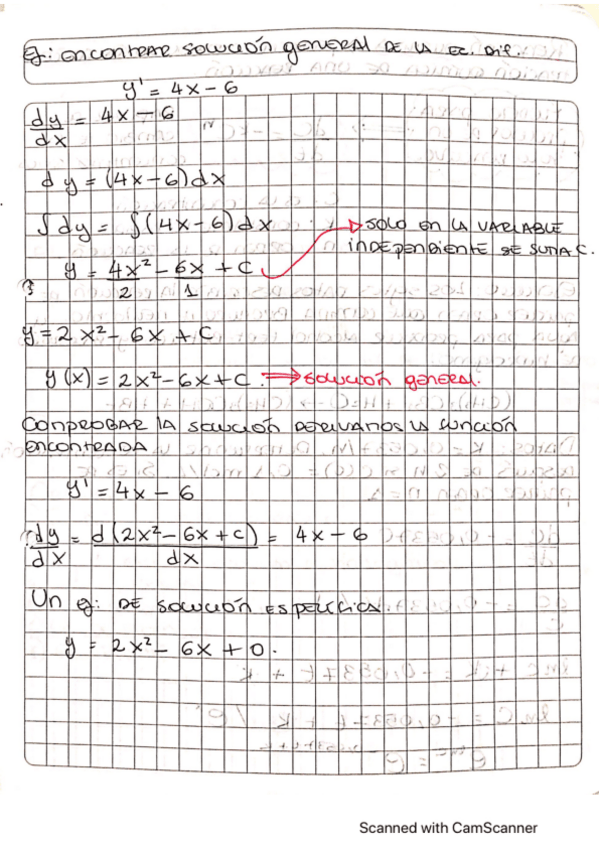 Ej: encontrar solución general DE LA EC. Dif.
y' = 4x - 6
dy/dx = 4x - 6
dy = (4x-6)dx
∫dy = ∫(4x-6)dx → SOLO EN LA VARIABLE
INDEPENDIENTE SE SUMA C.
y = 4x²/2 - 6x/1 + C
y = 2x² - 6x + C
y(x) = 2x² - 6x + C. ⇒ solución general.
COMPROBAR LA SOLUCIÓN DERIVAMOS LA FUNCIÓN
ENCONTRADA.
y' = 4x - 6
dy/dx = d(2x² - 6x + C)/dx = 4x - 6
Un ej: DE SOLUCIÓN ESPECÍFICA.
y = 2x² - 6x + 0.
Scanned with CamScanner